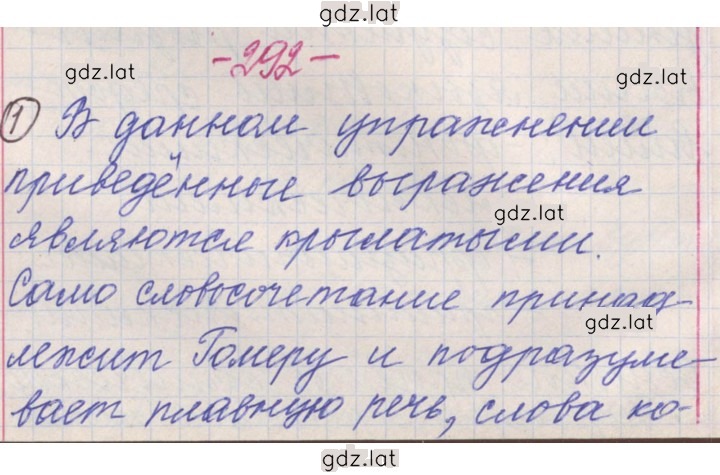 gdz.lat
-292-
gdz.lat
gdz.lat
1 В данном упражнении
приведённые выражения
gdz.lat
являются крылатыми.
Само словосочетание принад-
gdz.lat
лежит Гомеру и подразуме-
вает плавную речь, слова ко-
gdz.lat